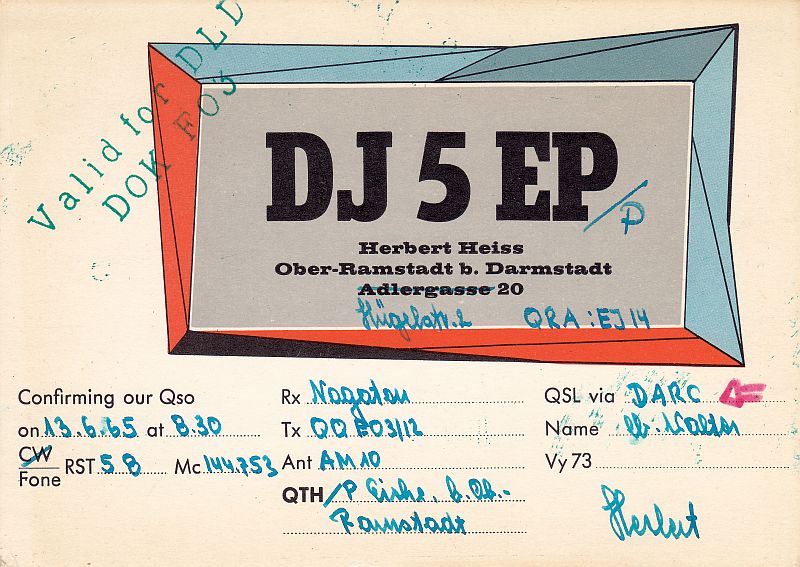 Valid for DLD
DOK F03
DJ 5 EP/P
Herbert Heiss
Ober-Ramstadt b. Darmstadt
Adlergasse 20
Hügelstr. 2 QRA: EJ14
Confirming our Qso
on 13.6.65 at 8.30
CW
Fone
RST 58 Mc 144.753
Rx Nogoton
Tx QQE03/12
Ant AM10
QTH /P b. Ob.-
Ramstadt
QSL via DARC
Name Walter
Vy 73
Herbert